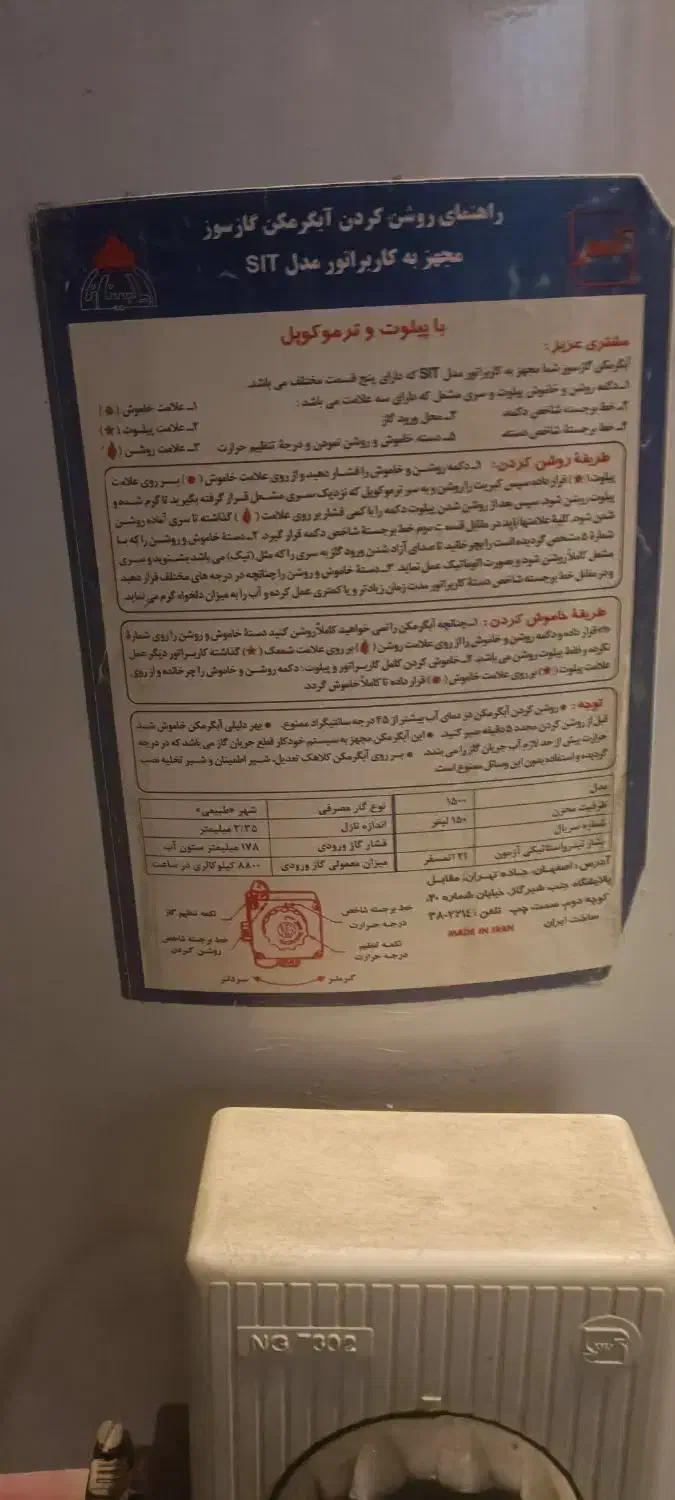 راهنمای روشن کردن آبگرمکن گازسوز
مجهز به کاربراتور مدل SIT
با پیلوت و ترموکوپل
مشتری عزیز:
آبگرمکن گازسوز شما مجهز به کاربراتور مدل SIT که دارای پنج قسمت مختلف می باشد.
۱ـ دکمه روشن و خاموش پیلوت و سری مشعل که دارای سه علامت می باشد:
۱ـ علامت خاموش (●)
۲ـ خط برجسته شاخص دکمه.
۳ـ محل ورود گاز
۲ـ علامت پیلوت (★)
۴ـ خط برجستهٔ شاخص دسته.
۵ـ دسته خاموش و روشن نمودن و درجهٔ تنظیم حرارت
۳ـ علامت روشن
طریقهٔ روشن کردن: ۱ـ دکمه روشن و خاموش را فشار دهید و از روی علامت خاموش (●) بر روی علامت
پیلوت (★) قرار داده سپس کبریت را روشن و به سر ترموکوپل که نزدیک سری مشعل قرار گرفته بگیرید تا گرم شده و
پیلوت روشن شود. سپس بعد از روشن شدن پیلوت دکمه را با کمی فشار بر روی علامت گذاشته تا سری آماده روشن
شدن شود. کلیهٔ علامتها باید در مقابل قسمت سوم خط برجستهٔ شاخص دکمه قرار گیرد. ۲ـ دستهٔ خاموش و روشن را که با
شمارهٔ ۵ مشخص گردیده است را بچرخانید تا صدای آزاد شدن ورود گاز به سری را که مثل (تیک) می باشد بشنوید و سری
مشعل کاملاً روشن شود و بصورت اتوماتیک عمل نماید. ۳ـ دستهٔ خاموش و روشن را چنانچه در درجه های مختلف قرار دهید
و در مقابل خط برجسته شاخص دستهٔ کاربراتور مدت زمان زیادتر و یا کمتری عمل کرده و آب را به میزان دلخواه گرم می نماید.
طریقهٔ خاموش کردن: ۱ـ چنانچه آبگرمکن را نمی خواهید کاملاً روشن کنید دستهٔ خاموش و روشن را روی شمارهٔ
قرار داده و دکمه روشن و خاموش را از روی علامت روشن بر روی علامت شمعک (★) گذاشته کاربراتور دیگر عمل
نکرده و فقط پیلوت روشن می باشد. ۲ـ خاموش کردن کامل کاربراتور و پیلوت: دکمه روشن و خاموش را چرخانده و از روی
علامت پیلوت (★) بر روی علامت خاموش (●) قرار داده تا کاملاً خاموش گردد.
توجه: ● روشن کردن آبگرمکن در دمای آب بیشتر از ۴۵ درجه سانتیگراد ممنوع. ● بهر دلیلی آبگرمکن خاموش شد
قبل از روشن کردن مجدد ۵ دقیقه صبر کنید. ● این آبگرمکن مجهز به سیستم خودکار قطع جریان گاز می باشد که در درجه
حرارت بیش از حد لازم آب جریان گاز را می بندد. ● بر روی آبگرمکن کلاهک تعدیل، شیر اطمینان و شیر تخلیه نصب
گردیده و استفاده بدون این وسائل ممنوع است.
مدل ۱۵۰۰ نوع گاز مصرفی شهر «طبیعی»
ظرفیت مخزن ۱۵۰ لیتر اندازه نازل ۳/۲۵ میلیمتر
شماره سریال فشار گاز ورودی ۱۷۸ میلیمتر ستون آب
اتمسفر میزان معمولی گاز ورودی ۸۸۰۰ کیلوکالری در ساعت
آدرس: اصفهان، جاده تهران، مقابل
پالایشگاه، جنب شیر گاز، خیابان شماره ۲۰
کوچه دوم، سمت چپ تلفن: ۳۸۰۲۲۱۴
ساخت ایران
MADE IN IRAN
خط برجسته شاخص
درجه حرارت
دکمه تنظیم
درجه حرارت
دکمه تنظیم گاز
خط برجسته شاخص
روشن کردن
گرمتر
سردتر
NG 7302